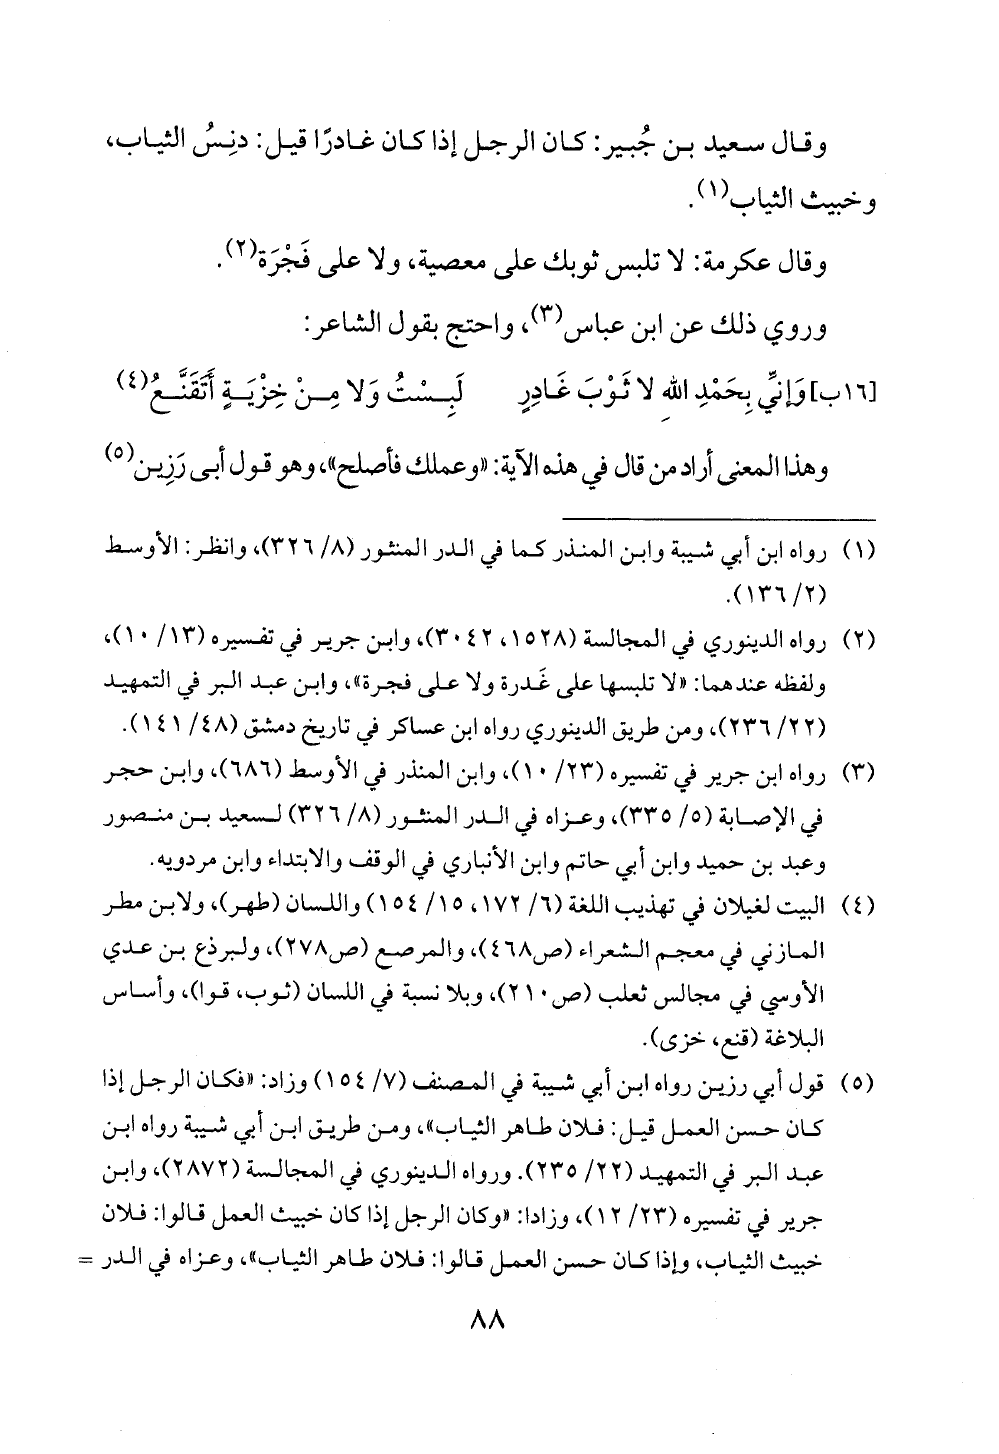 وقال سعيد بن جُبير: كان الرجل إذا كان غادرًا قيل: دنِسُ الثياب،
وخبيث الثياب(١).
وقال عكرمة: لا تلبس ثوبك على معصية، ولا على فَجْرَة(٢).
وروي ذلك عن ابن عباس(٣)، واحتج بقول الشاعر:
[١٦ب] وَإنِّي بِحَمْدِ اللهِ لا ثَوْبَ غَادِرٍ لَبِسْتُ وَلا مِنْ خِزْيَةٍ أَتَقَنَّعُ(٤)
وهذا المعنى أراد من قال في هذه الآية: «وعملك فأصلح»، وهو قول أبي رَزِين(٥)
(١) رواه ابن أبي شيبة وابن المنذر كما في الدر المنثور (٨/ ٣٢٦)، وانظر: الأوسط
(٢/ ١٣٦).
(٢) رواه الدينوري في المجالسة (١٥٢٨، ٣٠٤٢)، وابن جرير في تفسيره (١٣/ ١٠)،
ولفظه عندهما: «لا تلبسها على غَدرة ولا على فجرة»، وابن عبد البر في التمهيد
(٢٢/ ٢٣٦)، ومن طريق الدينوري رواه ابن عساكر في تاريخ دمشق (٤٨/ ١٤١).
(٣) رواه ابن جرير في تفسيره (٢٣/ ١٠)، وابن المنذر في الأوسط (٦٨٦)، وابن حجر
في الإصابة (٥/ ٣٣٥)، وعزاه في الدر المنثور (٨/ ٣٢٦) لسعيد بن منصور
وعبد بن حميد وابن أبي حاتم وابن الأنباري في الوقف والابتداء وابن مردويه.
(٤) البيت لغيلان في تهذيب اللغة (٦/ ١٧٢، ١٥/ ١٥٤) واللسان (طهر)، ولابن مطر
المازني في معجم الشعراء (ص٤٦٨)، والمرصع (ص٢٧٨)، ولبرذع بن عدي
الأوسي في مجالس ثعلب (ص٢١٠)، وبلا نسبة في اللسان (ثوب، قوا)، وأساس
البلاغة (قنع، خزى).
(٥) قول أبي رزين رواه ابن أبي شيبة في المصنف (٧/ ١٥٤) وزاد: «فكان الرجل إذا
كان حسن العمل قيل: فلان طاهر الثياب»، ومن طريق ابن أبي شيبة رواه ابن
عبد البر في التمهيد (٢٢/ ٢٣٥). ورواه الدينوري في المجالسة (٢٨٧٢)، وابن
جرير في تفسيره (٢٣/ ١٢)، وزادا: «وكان الرجل إذا كان خبيث العمل قالوا: فلان
خبيث الثياب، وإذا كان حسن العمل قالوا: فلان طاهر الثياب»، وعزاه في الدر =
٨٨